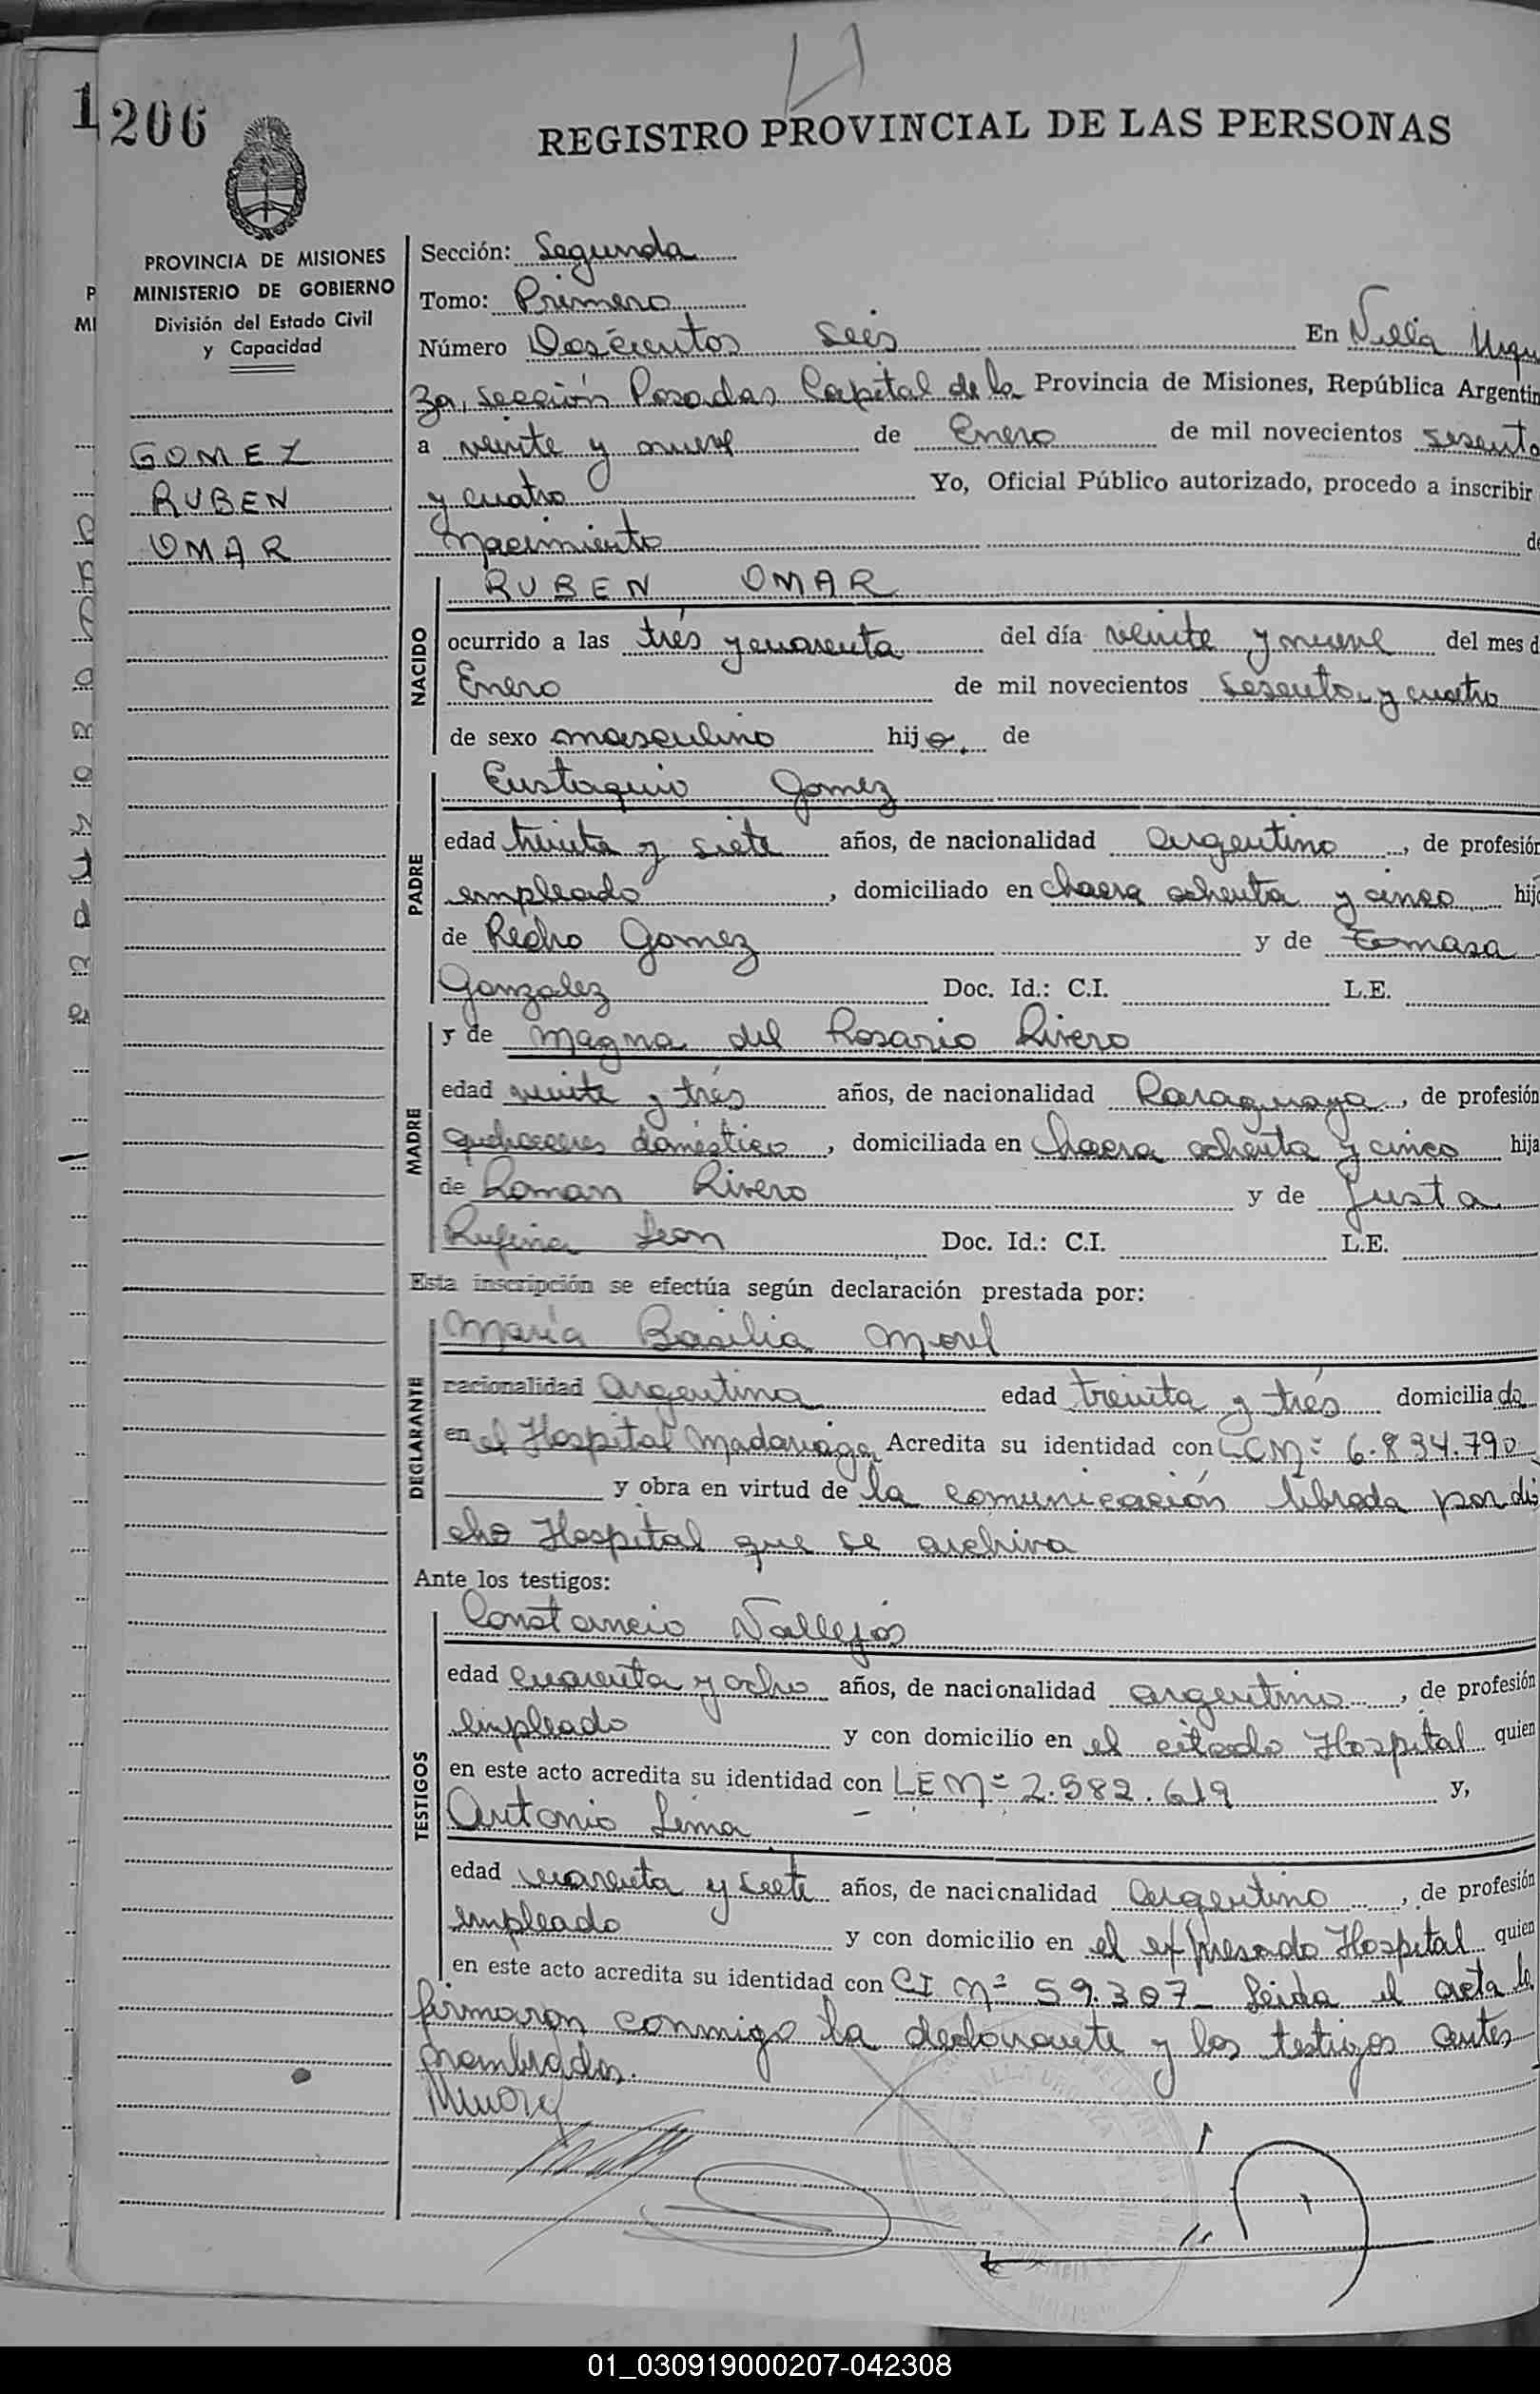 1
206
REGISTRO PROVINCIAL DE LAS PERSONAS
PROVINCIA DE MISIONES
MINISTERIO DE GOBIERNO
División del Estado Civil
y Capacidad
GOMEZ
RUBEN
OMAR
Sección: Segunda
Tomo: Primero
Número Doscientos seis En Villa Urqui
za, sección Posadas Capital de la Provincia de Misiones, República Argentin
a veinte y nueve de Enero de mil novecientos sesenta
y cuatro Yo, Oficial Público autorizado, procedo a inscribir
nacimiento de
NACIDO
RUBEN OMAR
ocurrido a las trés y cuarenta del día veinte y nueve del mes d
Enero de mil novecientos sesenta y cuatro
de sexo masculino hijo. de
PADRE
Eustaquio Gomez
edad treinta y siete años, de nacionalidad argentino, de profesión
empleado, domiciliado en chacra ochenta y cinco hijo
de Pedro Gomez y de Tomasa
Gonzalez Doc. Id.: C.I. L.E.
MADRE
y de Magna del Rosario Rivero
edad veinte y trés años, de nacionalidad Paraguaya, de profesión
quehaceres doméstico, domiciliada en chacra ochenta y cinco hija
de Roman Rivero y de Justa
Rufina Leon Doc. Id.: C.I. L.E.
Esta inscripción se efectúa según declaración prestada por:
DECLARANTE
María Basilia Morel
nacionalidad argentina edad treinta y trés domiciliada
en el Hospital Madariaga Acredita su identidad con LC Nº 6.834.790
y obra en virtud de la comunicación librada por di
cho Hospital que se archiva
Ante los testigos:
TESTIGOS
Constancio Vallejos
edad cuarenta y ocho años, de nacionalidad argentino, de profesión
empleado y con domicilio en el citado Hospital quien
en este acto acredita su identidad con LE Nº 2.582.619 y,
Antonio Lima
edad cuarenta y siete años, de nacionalidad argentino, de profesión
empleado y con domicilio en el expresado Hospital quien
en este acto acredita su identidad con CI Nº 59.307_ Leida el acta la
firmaron conmigo la declarante y los testigos antes
nombrados.
01_030919000207-042308